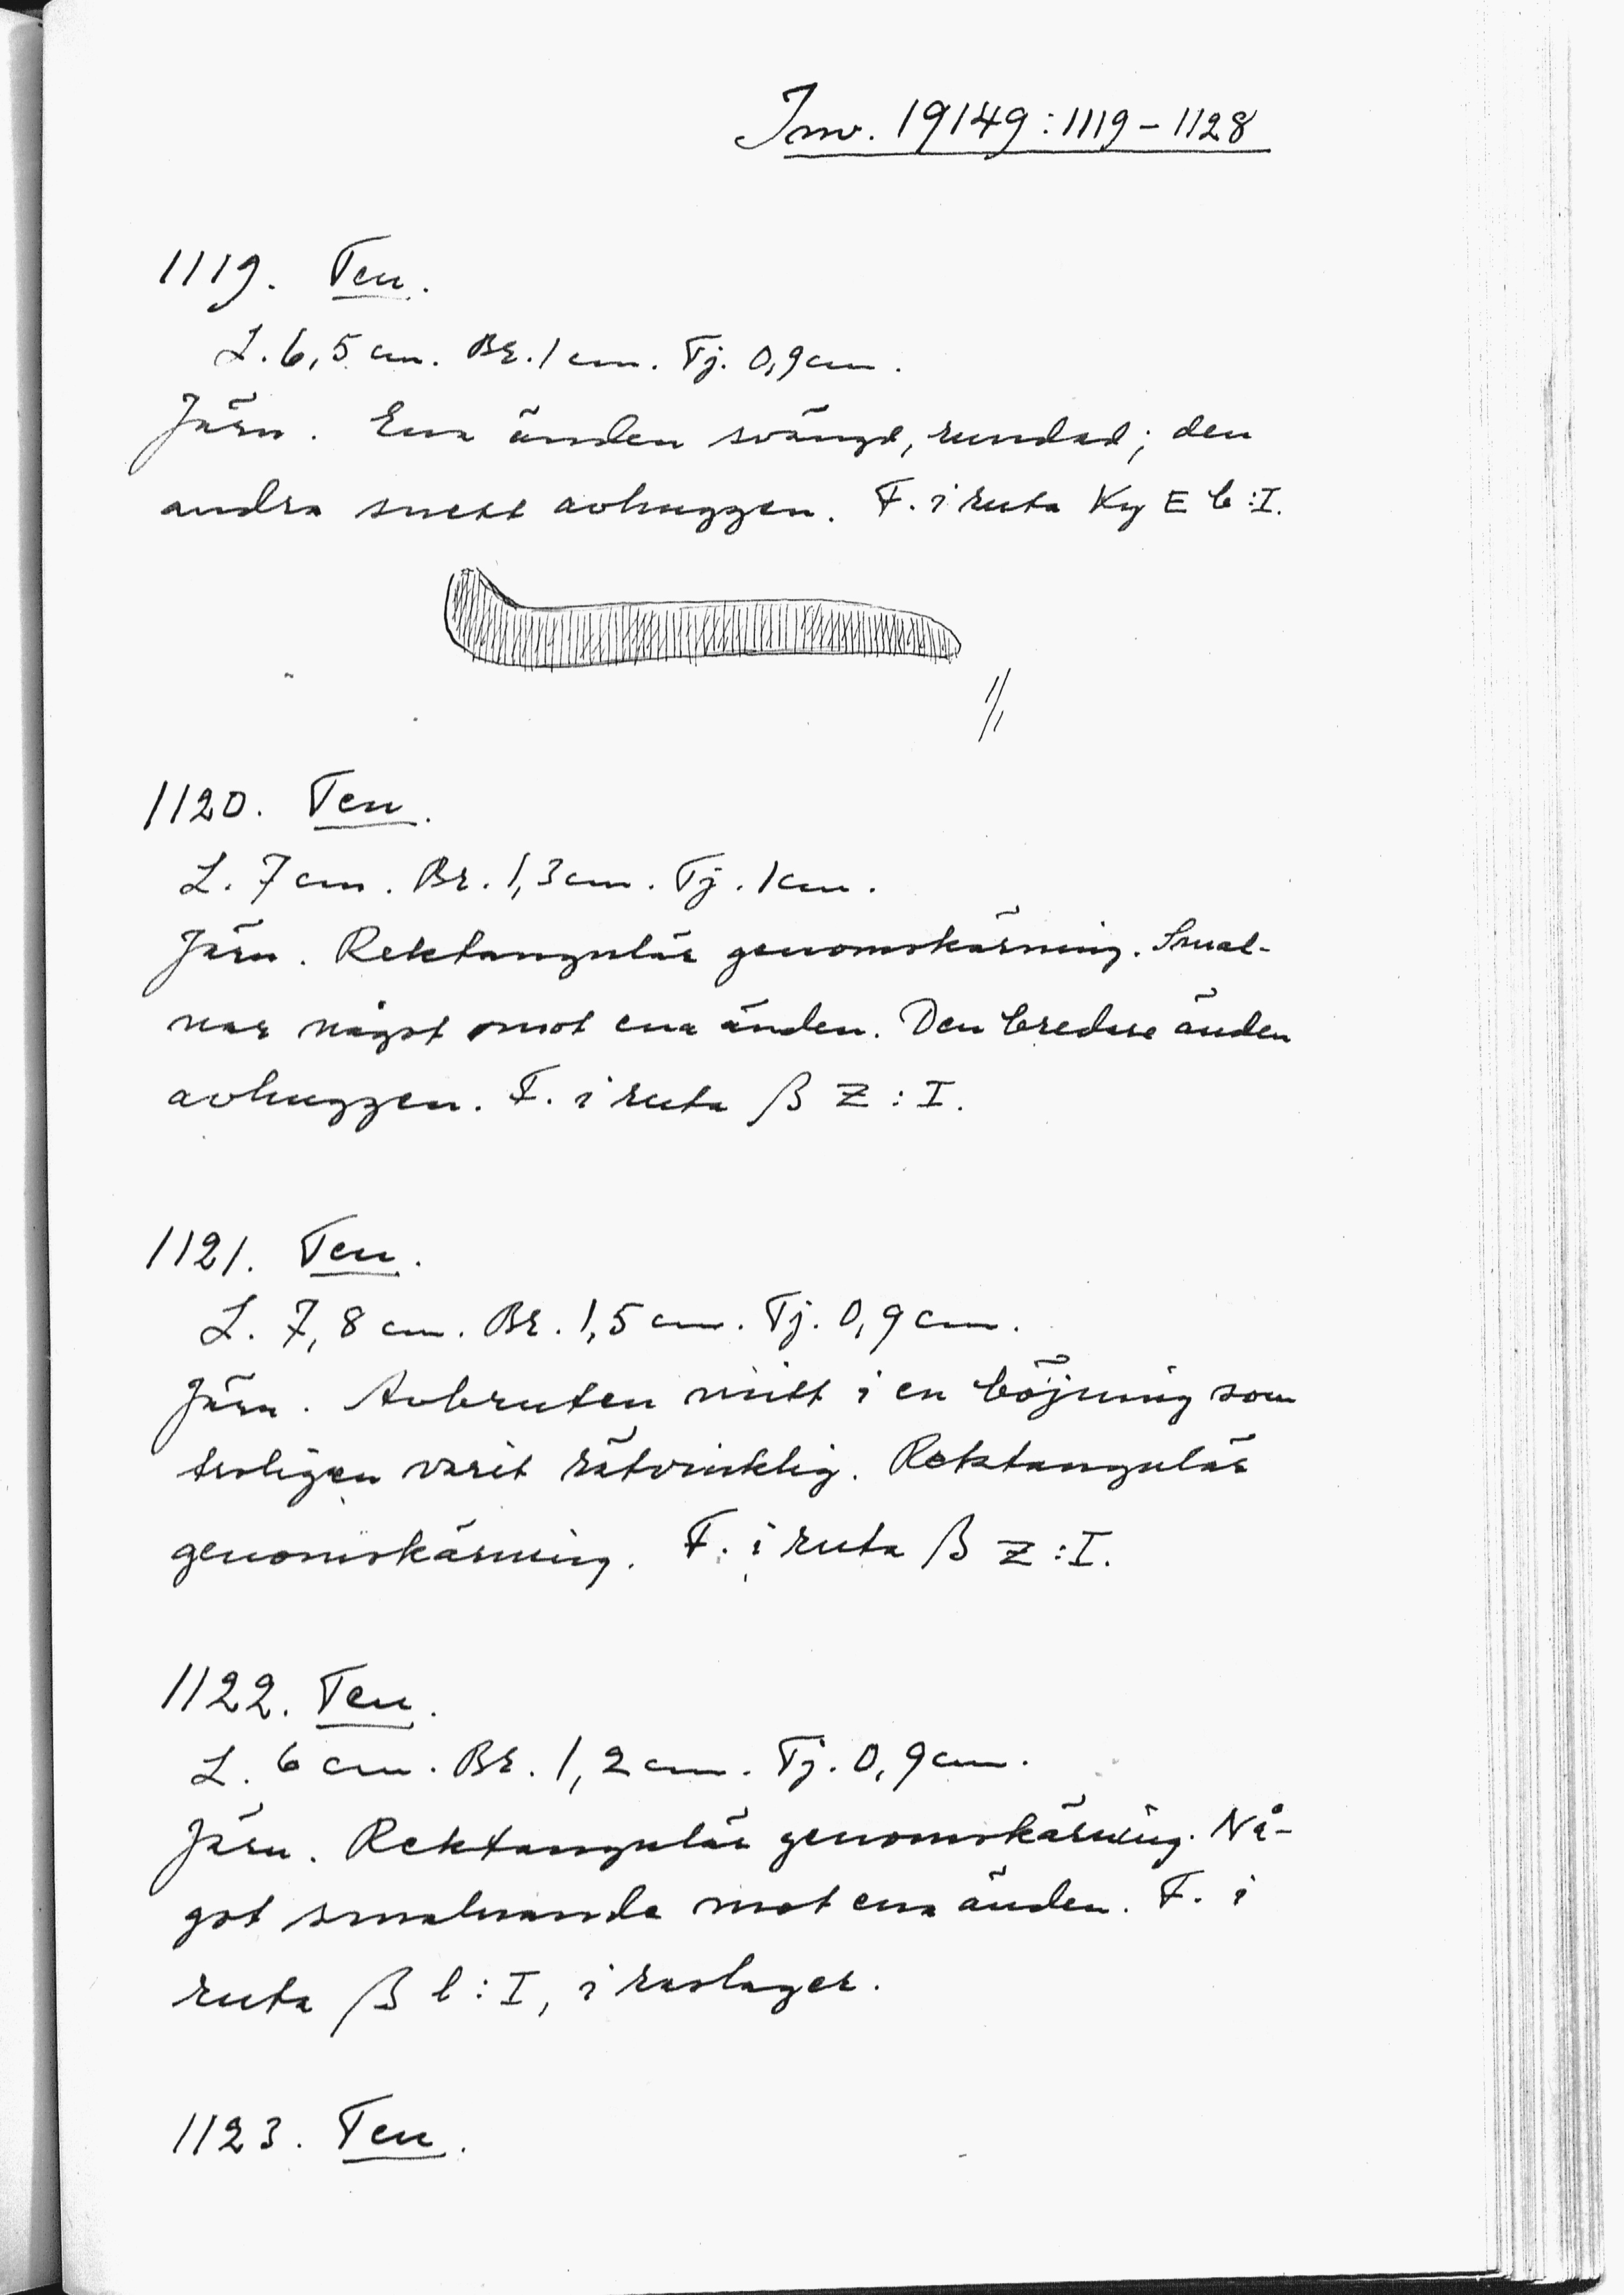 Inv. 19149:1119-1128
1119. Ten.
L. 6,5 cm. Br. 1 cm. Tj. 0,9 cm.
Järn. Ena änden svängd, rundad; den
andra snett avhuggen. F. i ruta Ky E b:I.
1/1
1120. Ten.
L. 7 cm. Br. 1,3 cm. Tj. 1 cm.
Järn. Rektangulär genomskärning. Smal-
nar något mot ena änden. Den bredare änden
avhuggen. F. i ruta β Z:I.
1121. Ten.
L. 7,8 cm. Br. 1,5 cm. Tj. 0,9 cm.
Järn. Avbruten mitt i en böjning som
troligen varit rätvinklig. Rektangulär
genomskärning. F. i ruta β Z:I.
1122. Ten.
L. 6 cm. Br. 1,2 cm. Tj. 0,9 cm.
Järn. Rektangulär genomskärning. Nå-
got smalnande mot ena änden. F. i
ruta β l:I, i raslager.
1123. Ten.